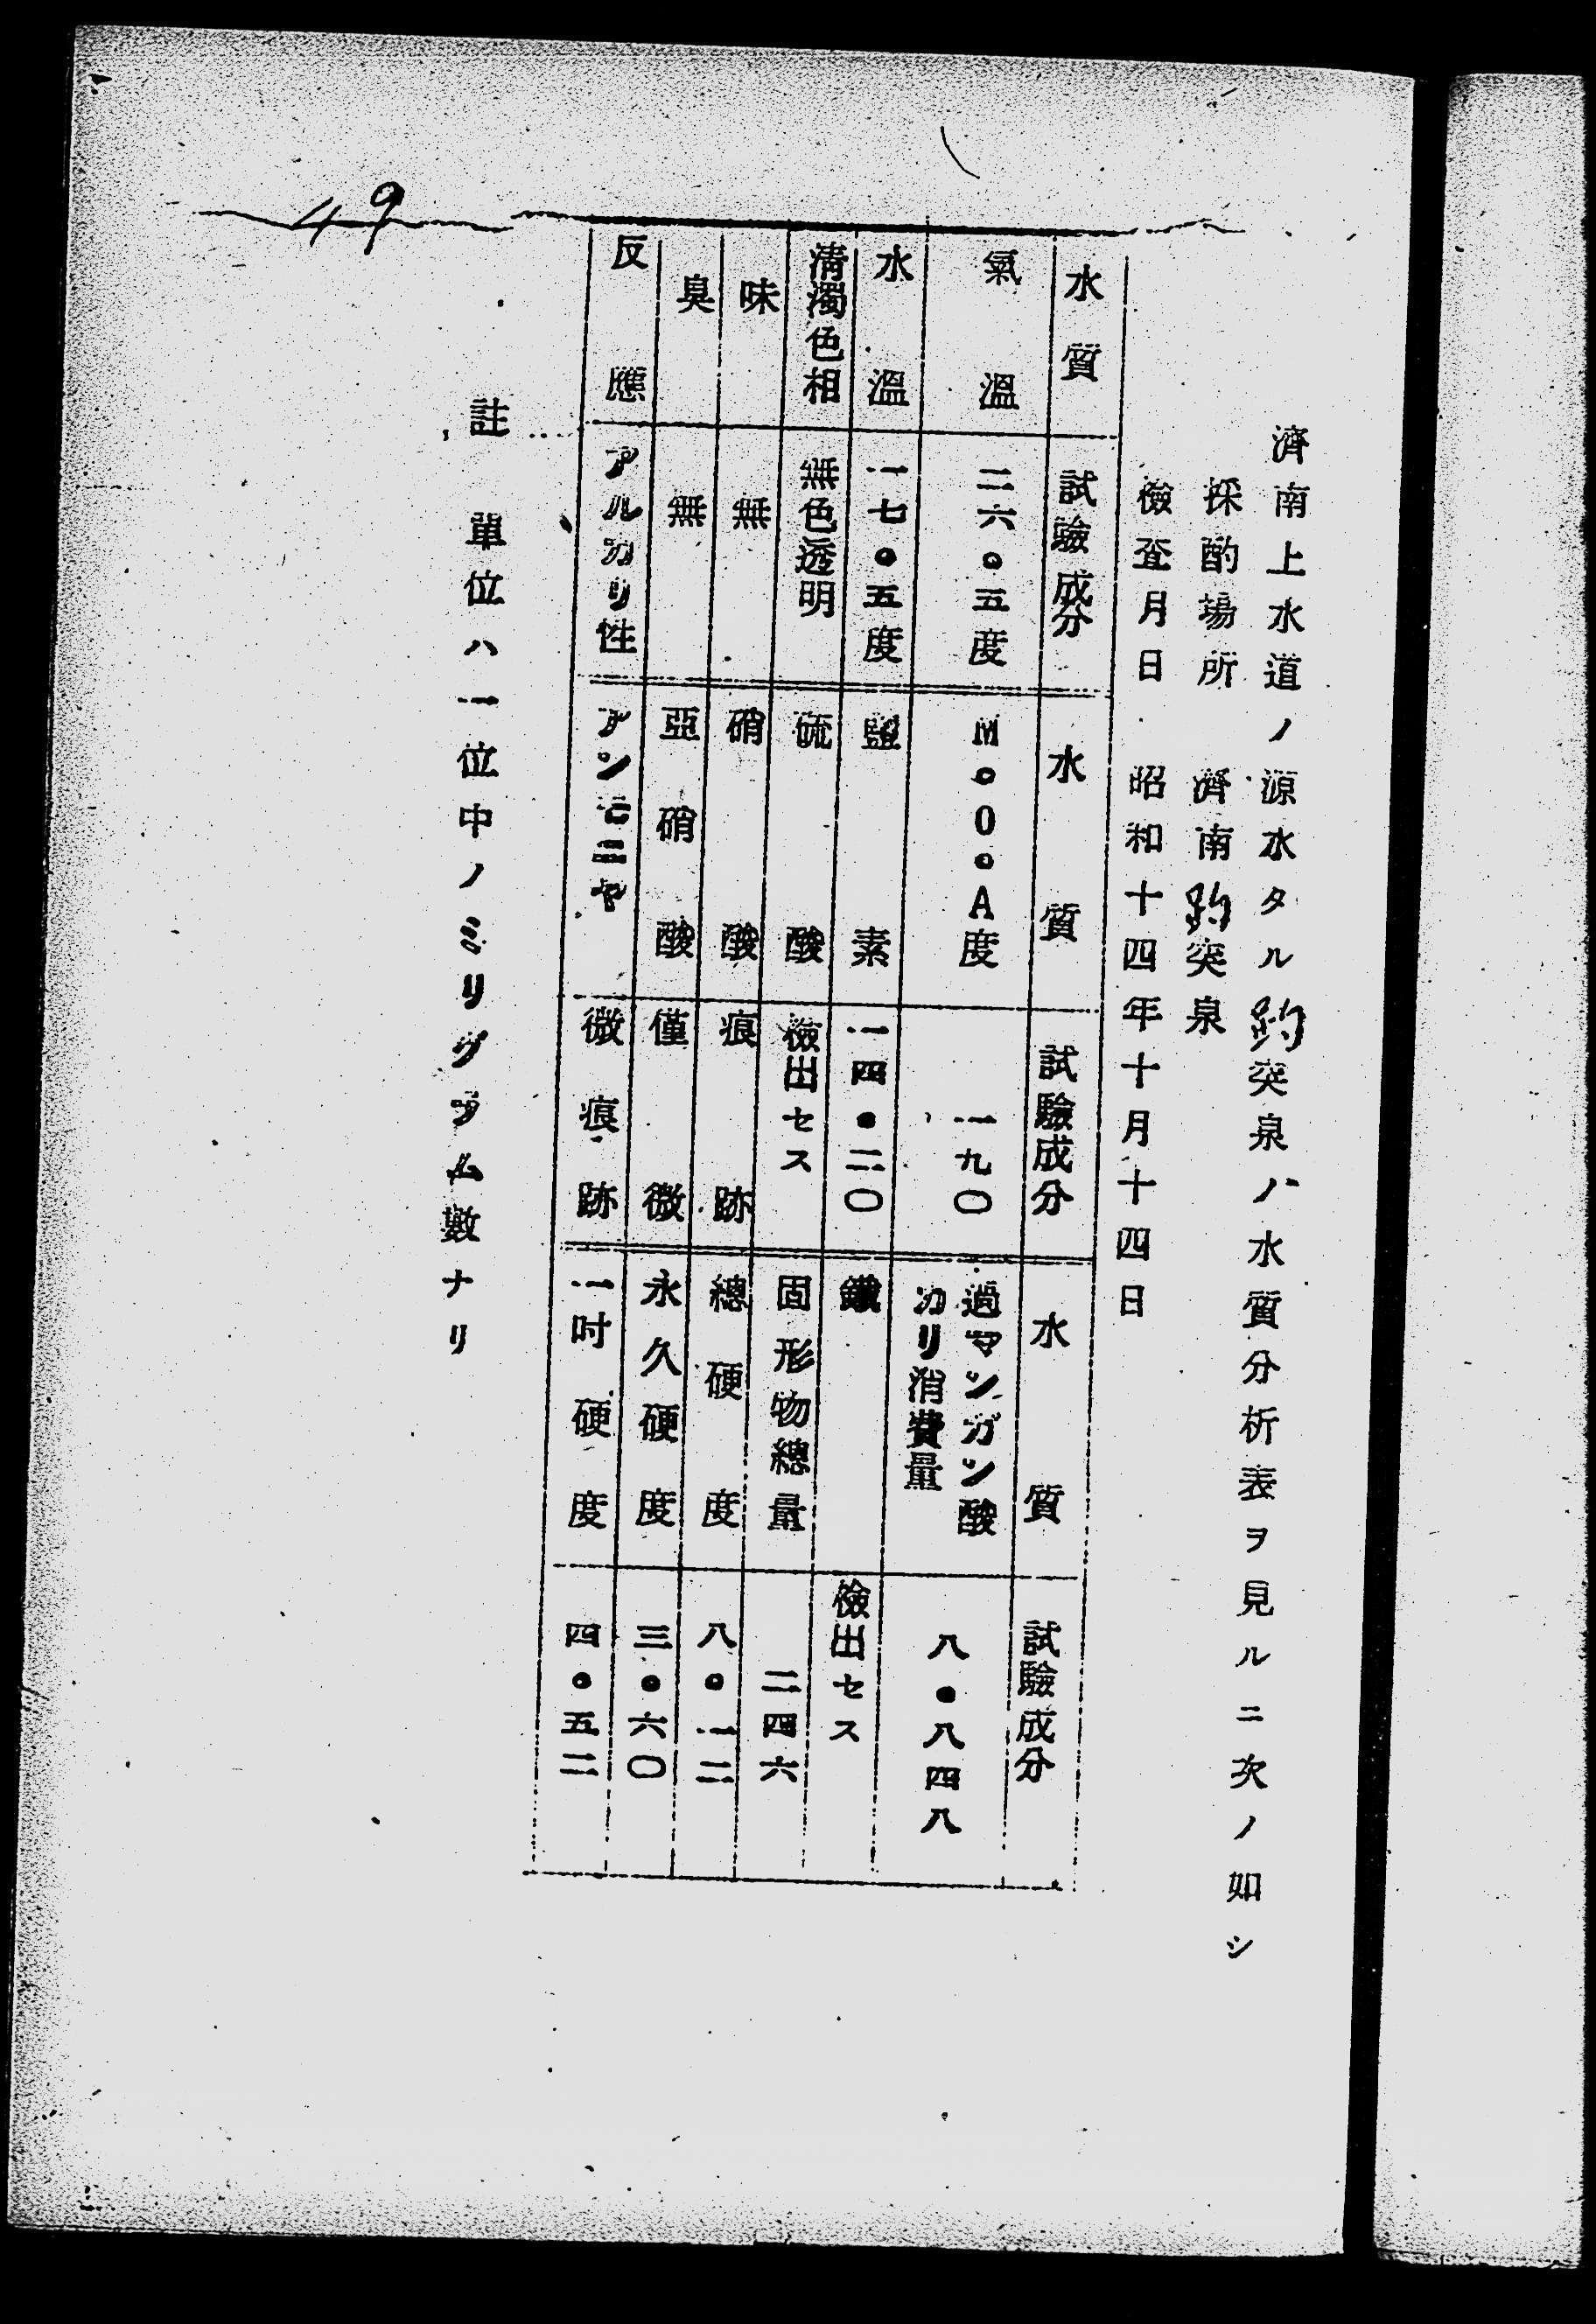 濟南上水道ノ源水タル趵突泉ノ水質分析表ヲ見ルニ次ノ如シ
採酌場所 濟南趵突泉
檢査月日 昭和十四年十月十四日
水質 試驗成分 水質 試驗成分 水質 試驗成分
氣溫 二六。五度 M。O。A度 一九〇 過マンガン酸カリ消費量 八。八四八
水溫 一七。五度 鹽素 一四。二〇 鐵 檢出セス
淸濁色相 無色透明 硫酸 檢出セス 固形物總量 二四六
味 無 硝酸 痕跡 總硬度 八。一二
臭 無 亞硝酸 僅微 永久硬度 三。六〇
反應 アルカリ性 アンモニヤ 微痕跡 一吋硬度 四。五二
註 單位ハ一位中ノミリグラム數ナリ
49